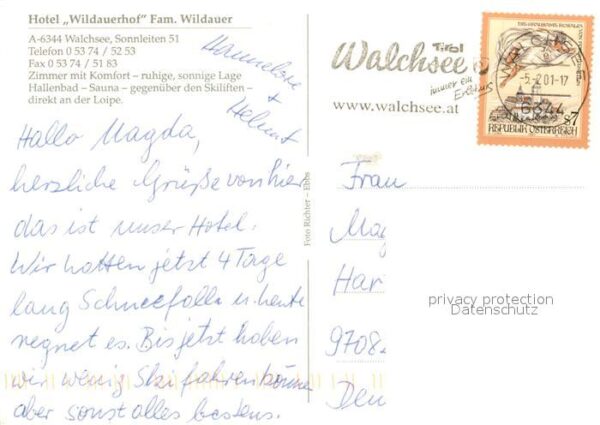 Hotel „Wildauerhof" Fam. Wildauer
A-6344 Walchsee, Sonnleiten 51
Telefon 0 53 74 / 52 53
Fax 0 53 74 / 51 83
Zimmer mit Komfort – ruhige, sonnige Lage
Hallenbad – Sauna – gegenüber den Skiliften –
direkt an der Loipe.
Hannelore
+
Helmut
Hallo Magda,
herzliche Grüße von hier
das ist unser Hotel.
Wir hatten jetzt 4 Tage
lang Schneefalle u. heute
regnet es. Bis jetzt haben
wir wenig Ski fahren könne
aber sonst alles bestens.
Foto Richter - Ebbs
Tirol
Walchsee
immer ein
Erlebnis
www.walchsee.at
-5.-2.01-17
6344
S7
REPUBLIK ÖSTERREICH
Frau
Mag
Har
9708
Deu
privacy protection
Datenschutz